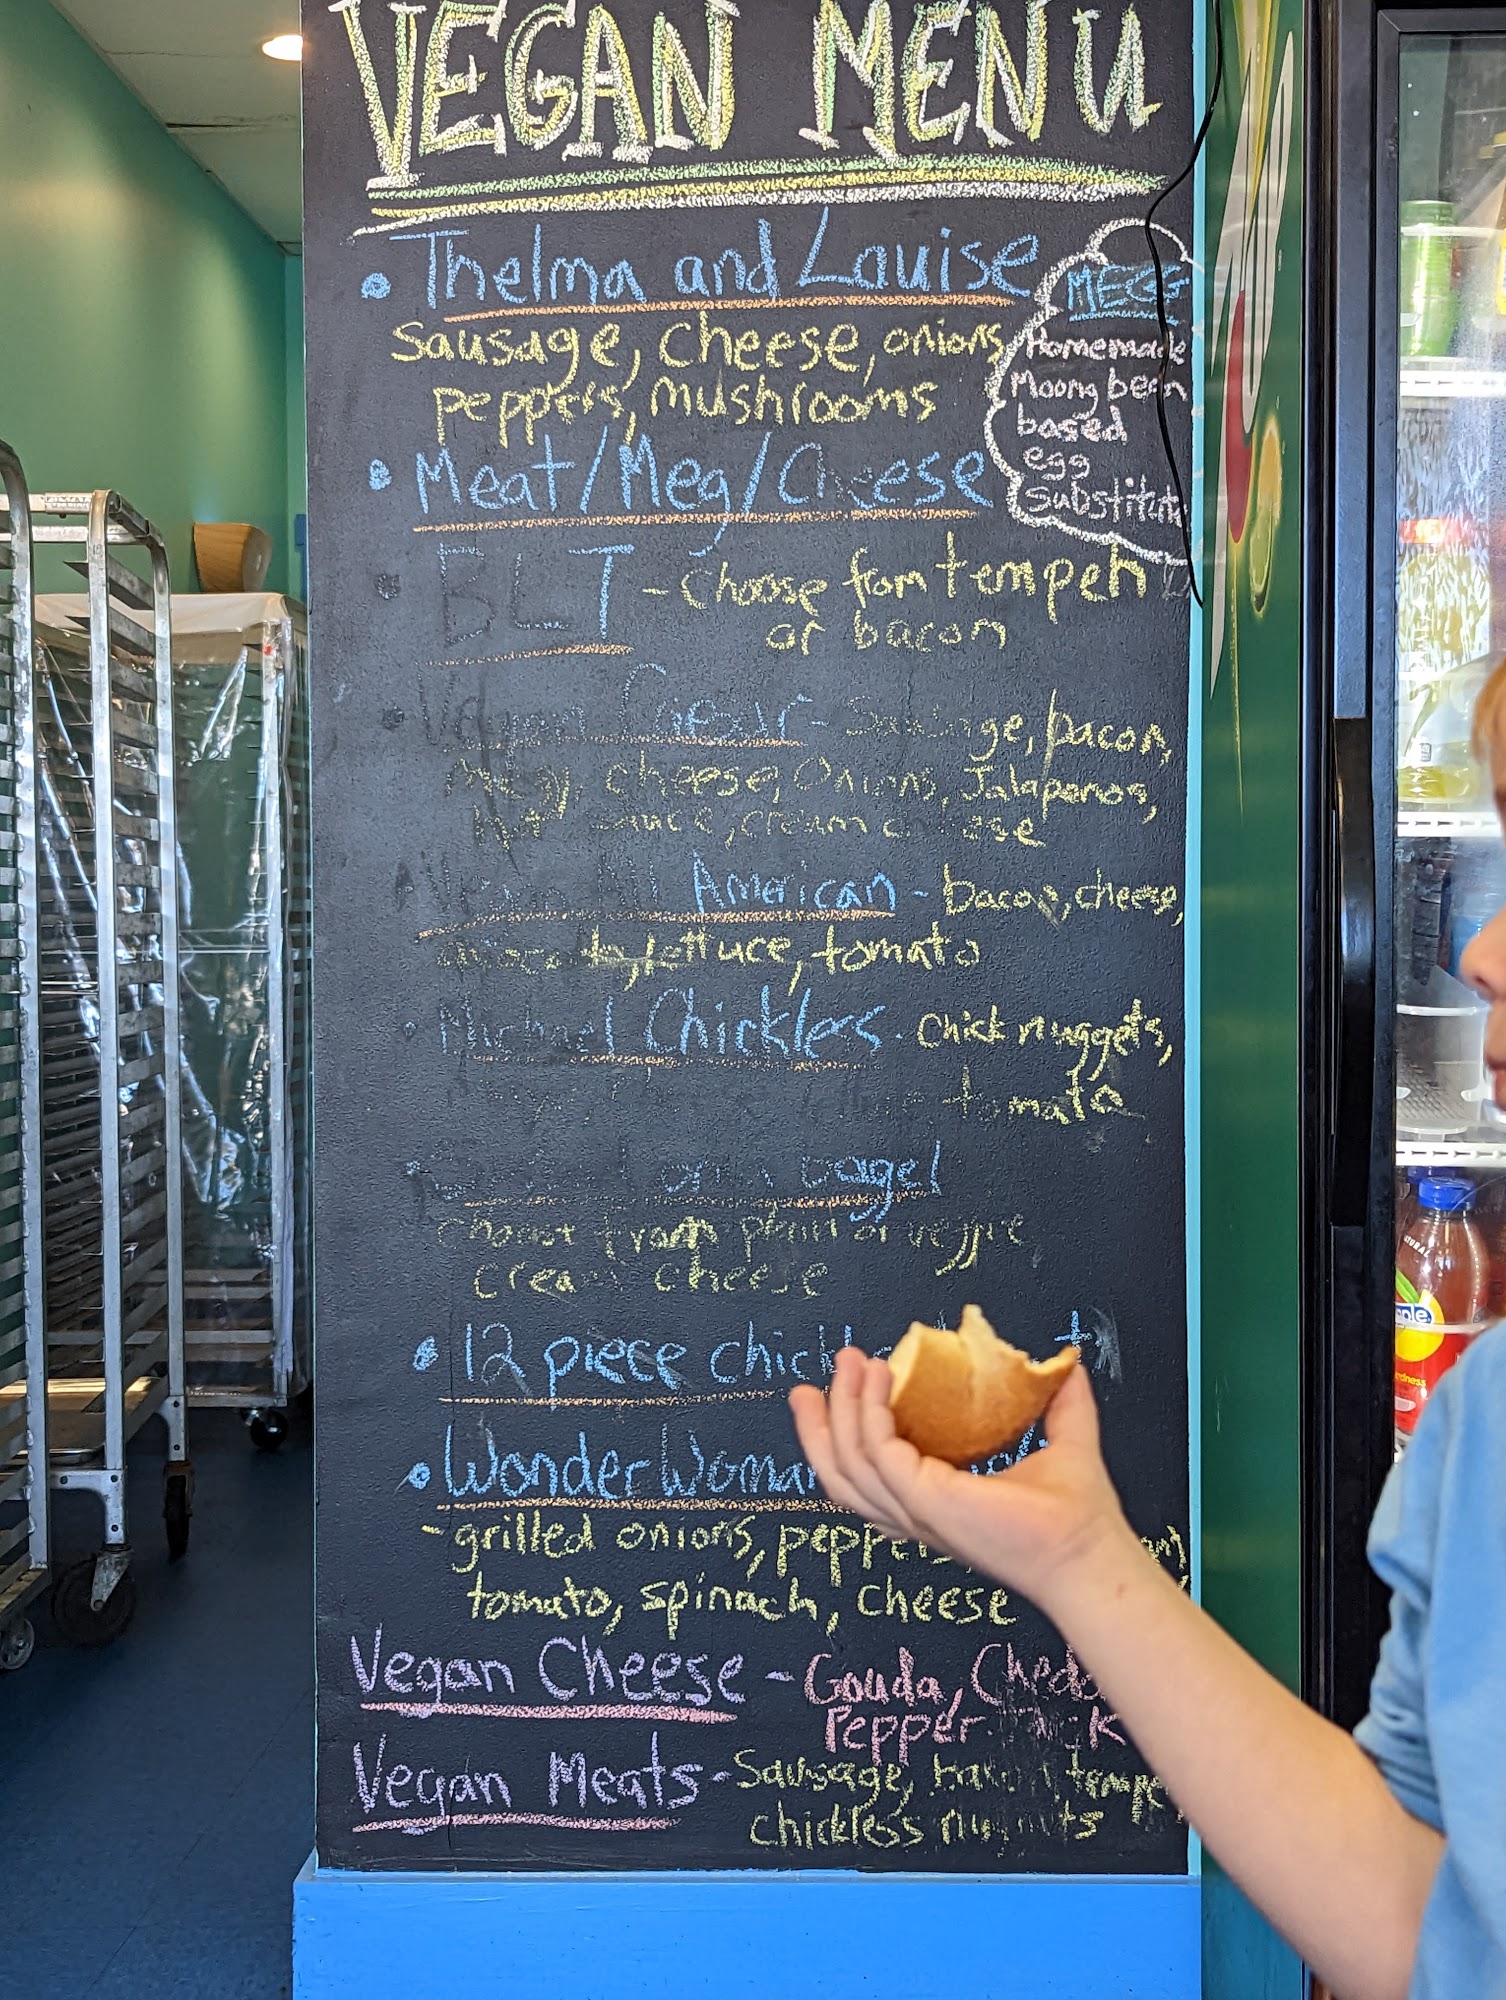 VEGAN MENU
• Thelma and Louise
sausage, cheese, onions
peppers, mushrooms
MEGG
Homemade
Moong been
based
egg
substitute
• Meat/Meg/Cheese
• BLT - Choose from tempeh
or bacon
• Vegan - Sausage, bacon,
megg, cheese, Onions, Jalapenos,
hot sauce, cream cheese
• Vegan All American - bacon, cheese,
avocado, lettuce, tomato
• Michael Chickless - Chick nuggets,
tomato
bagel
choose from plain or veggie
cream cheese
• 12 piece
• Wonder Woman
- grilled onions, peppers,
tomato, spinach, cheese
Vegan Cheese - Gouda,
Pepper Jack
Vegan Meats - Sausage,
chickless